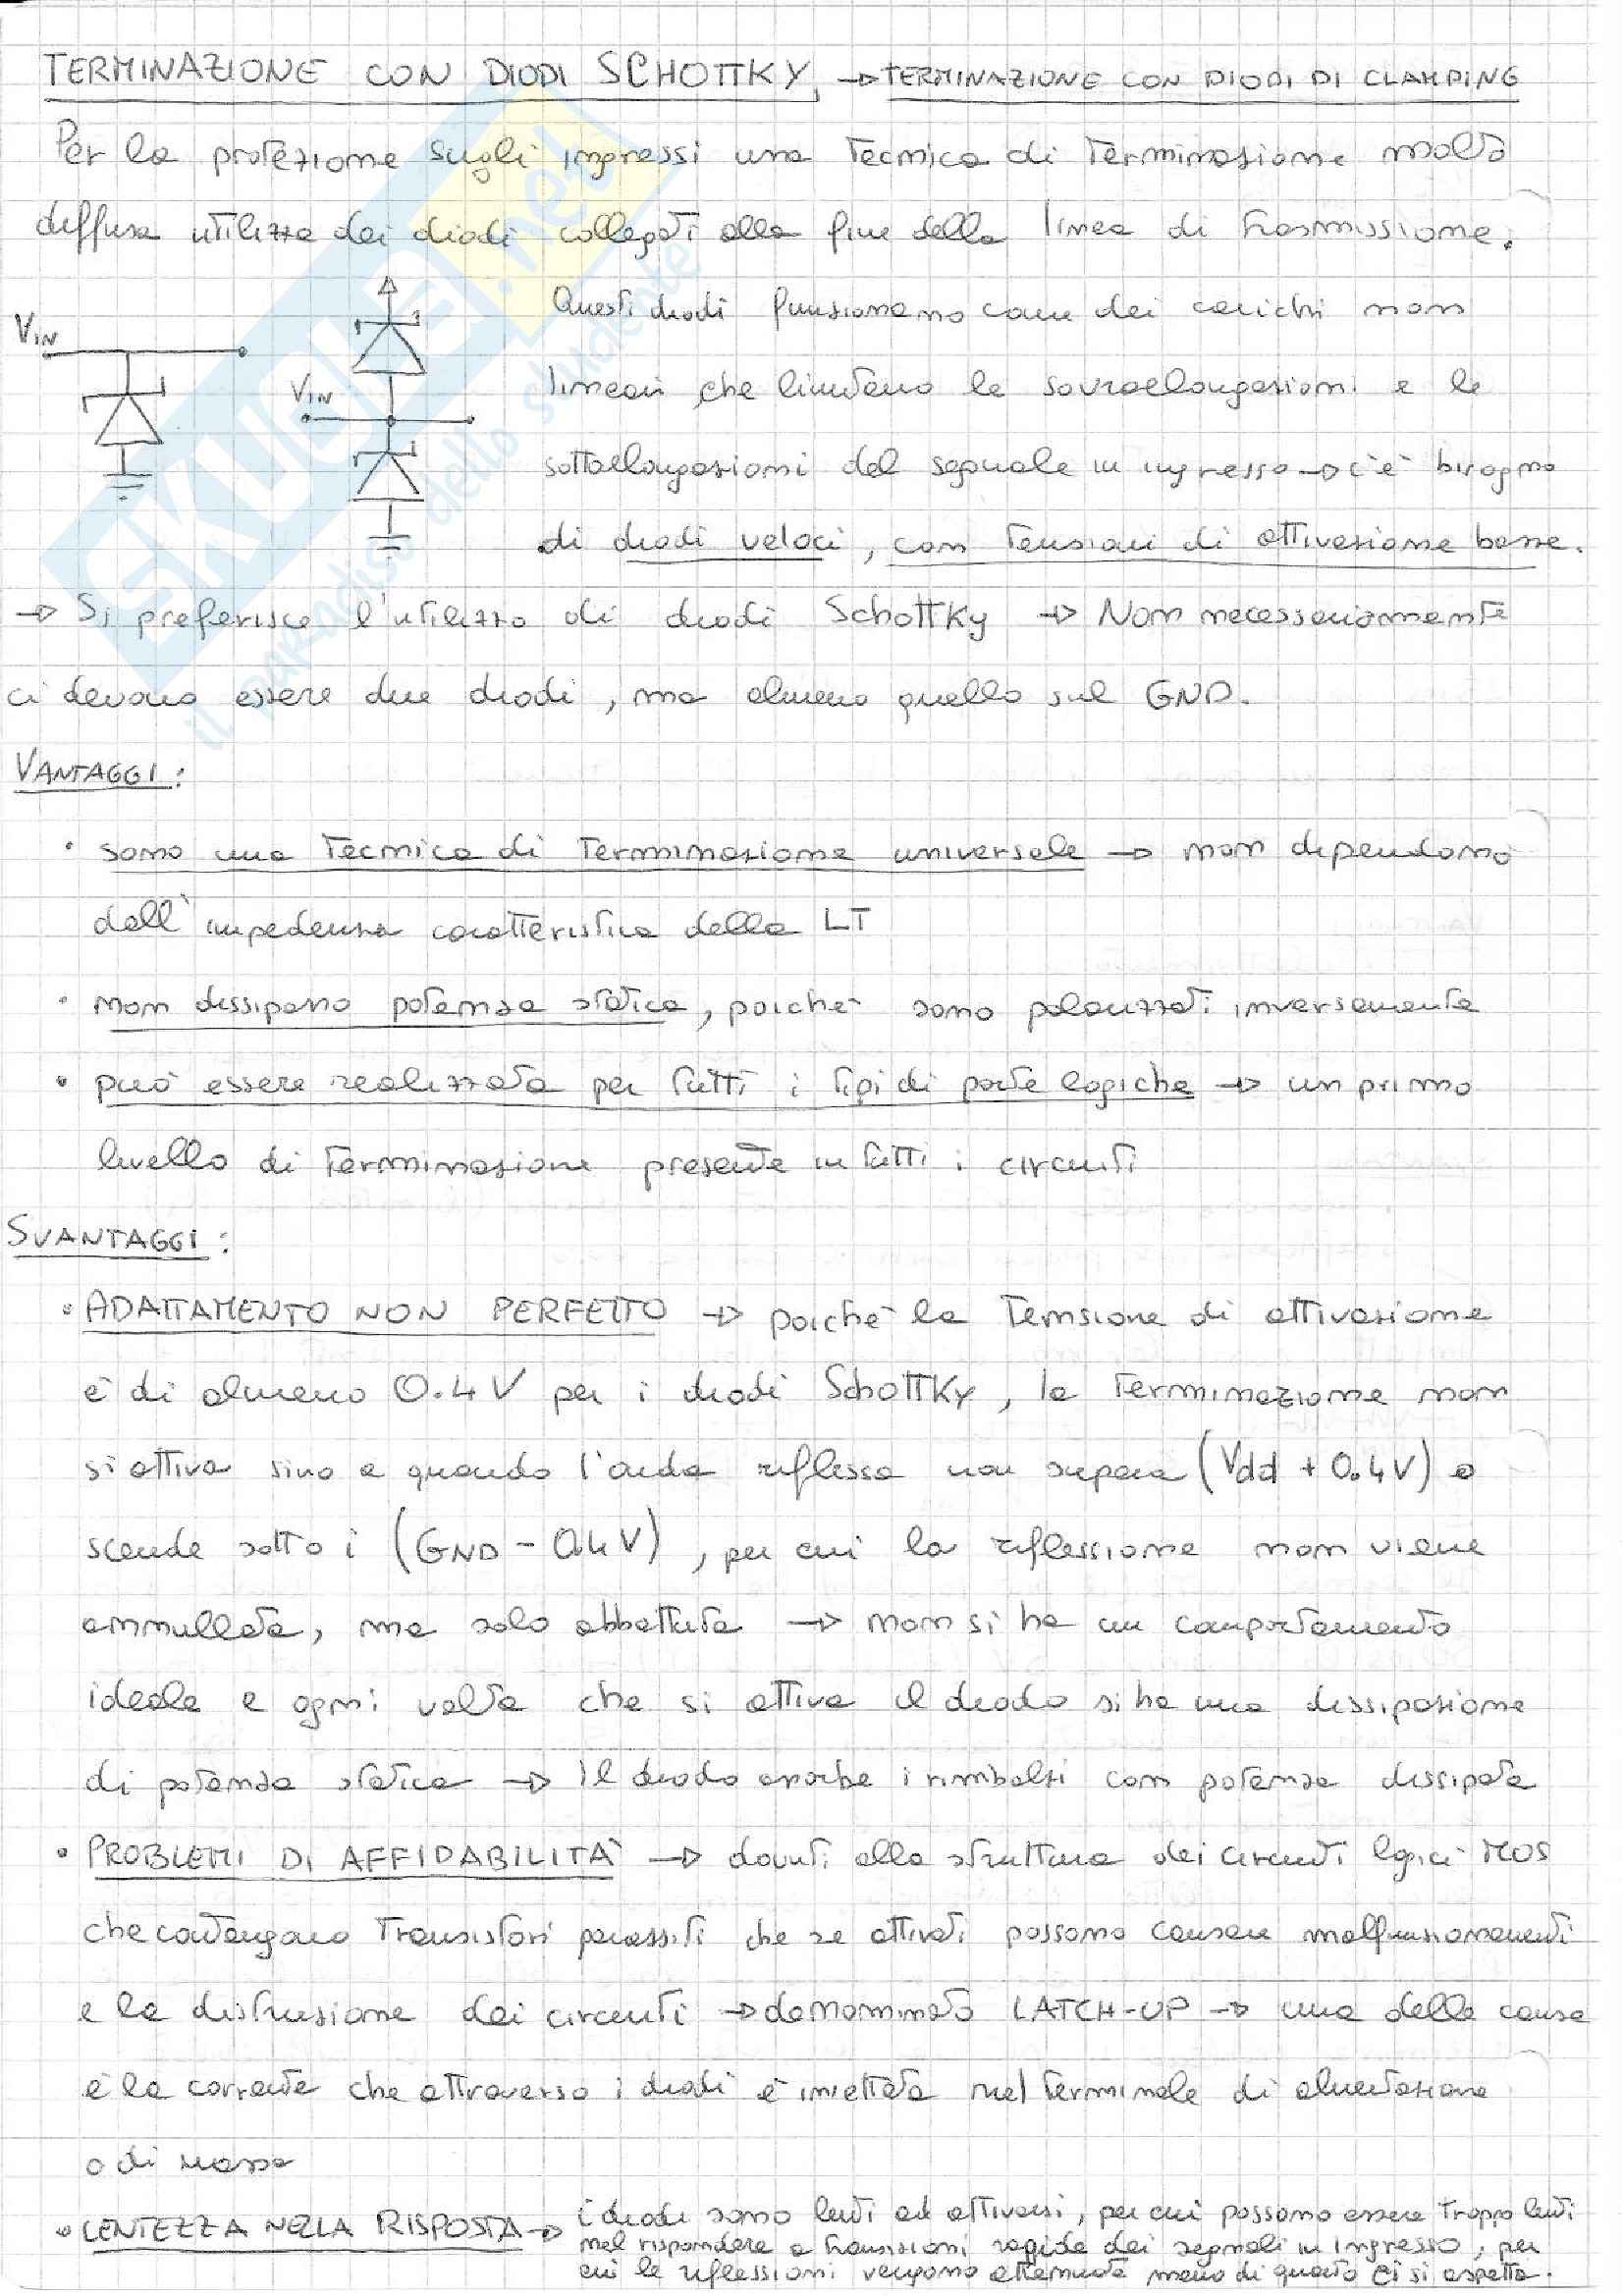 TERMINAZIONE CON DIODI SCHOTTKY → TERMINAZIONE CON DIODI DI CLAMPING
Per la protezione sugli ingressi una tecnica di terminazione molto
diffusa utilizza dei diodi collegati alla fine della linea di trasmissione.
Questi diodi funzionano come dei carichi non
lineari che limitano le sovraelongazioni e le
sottoelongazioni del segnale in ingresso → c'è bisogno
di diodi veloci, con tensioni di attivazione basse.
VIN
VIN
→ Si preferisce l'utilizzo di diodi Schottky → Non necessariamente
ci devono essere due diodi, ma almeno quello sul GND.
VANTAGGI:
• sono una tecnica di terminazione universale → non dipendono
dall'impedenza caratteristica della LT
• non dissipano potenza statica, poichè sono polarizzati inversamente
• può essere realizzata per tutti i tipi di porte logiche → un primo
livello di terminazione presente in tutti i circuiti
SVANTAGGI:
• ADATTAMENTO NON PERFETTO → poichè la tensione di attivazione
è di almeno 0.4 V per i diodi Schottky, la terminazione non
si attiva sino a quando l'onda riflessa non supera (Vdd + 0.4V) o
scende sotto i (GND - 0.4V), per cui la riflessione non viene
annullata, ma solo abbattuta → non si ha un comportamento
ideale e ogni volta che si attiva il diodo si ha una dissipazione
di potenza statica → Il diodo assorbe i rimbalzi con potenza dissipata
• PROBLEMI DI AFFIDABILITÀ → dovuti alla struttura dei circuiti logici MOS
che contengono transistori parassiti che se attivati possono causare malfunzionamenti
e la distruzione dei circuiti → denominato LATCH-UP → una delle cause
è la corrente che attraverso i diodi è iniettata nel terminale di alimentazione
o di massa
• LENTEZZA NELLA RISPOSTA → i diodi sono lenti ad attivarsi, per cui possono essere troppo lenti
nel rispondere a transizioni rapide dei segnali in ingresso, per
cui le riflessioni vengono attenuate meno di quanto ci si aspetta.
SKUOLA.net
il paradiso dello studente